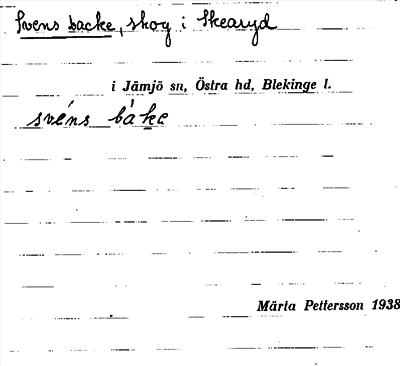 Svens backe, skog i Skearyd
i Jämjö sn, Östra hd, Blekinge l.
svéns bàke
Märta Pettersson 1938